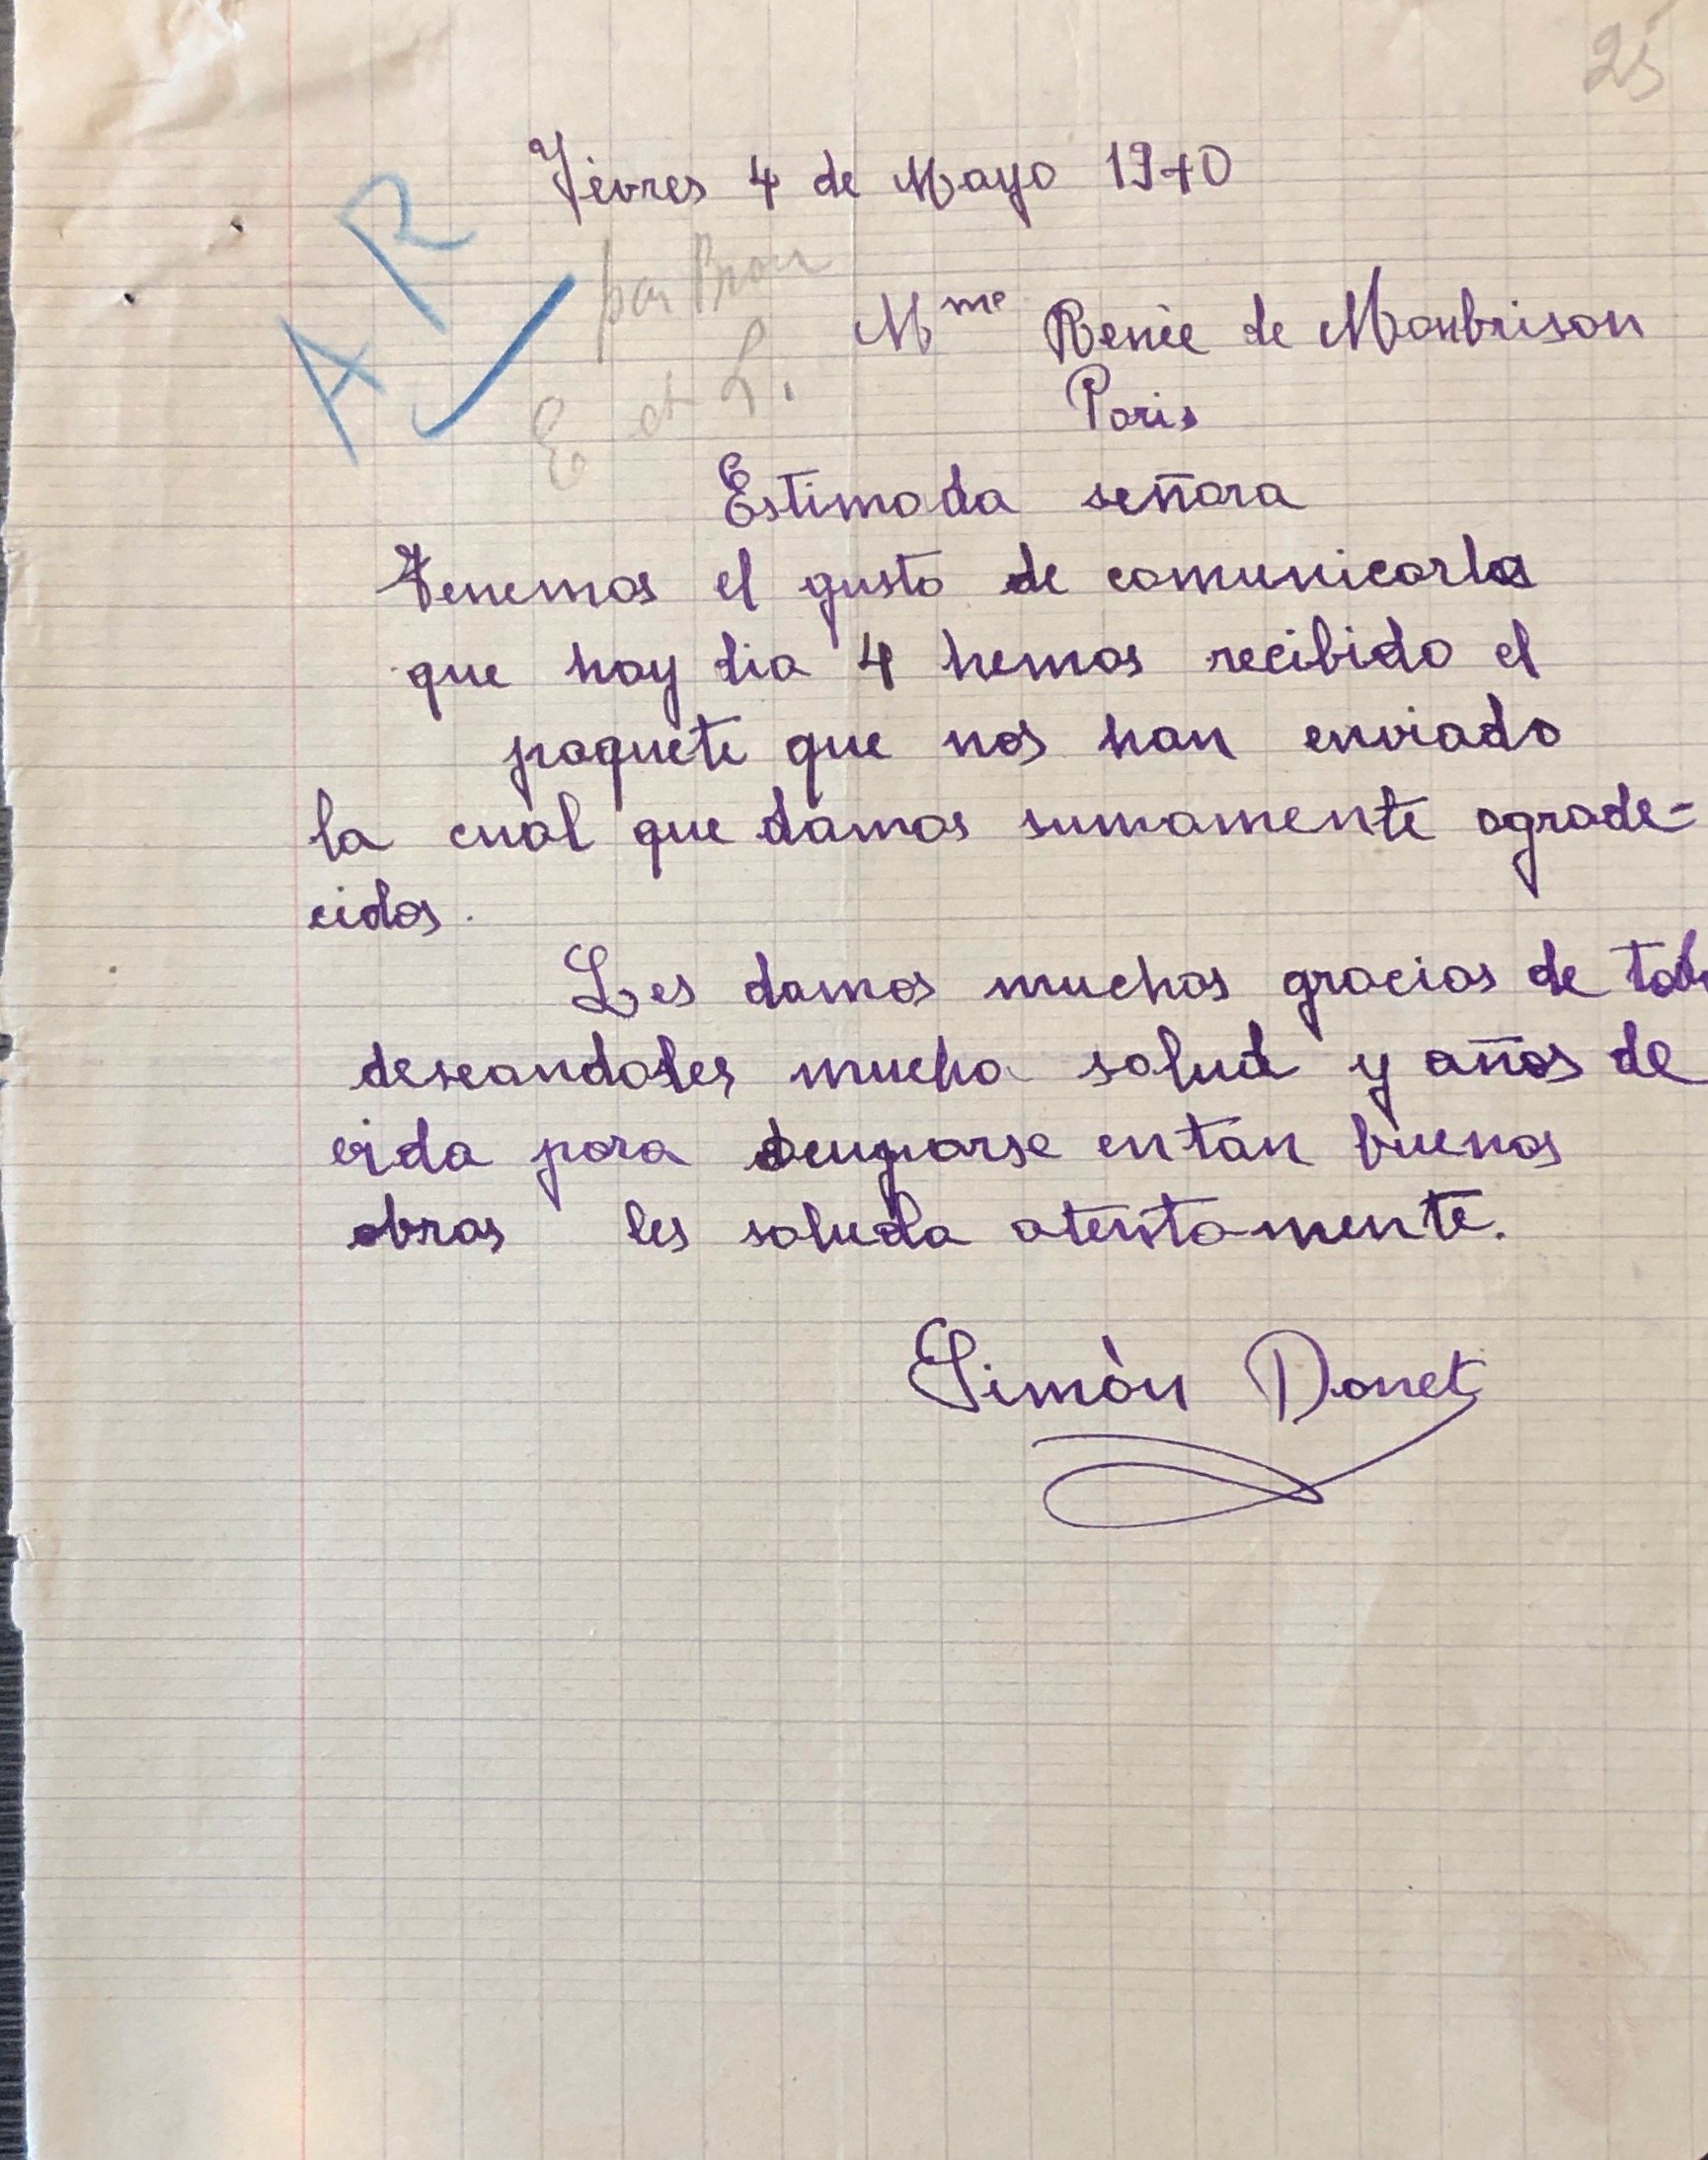 25
Yèvres 4 de Mayo 1940
A R
par
Mme Renèe de Monbrison
E et L.
Paris
Estimada señora
Tenemos el gusto de comunicarlas
que hoy dia 4 hemos recibido el
paquete que nos han enviado
la cual que damos sumamente agrade-
cidos.
Les damos muchas gracias de
deseandoles mucha salud y años de
vida para ocuparse en tan buenas
obras les saluda atentamente.
Simòn Donet